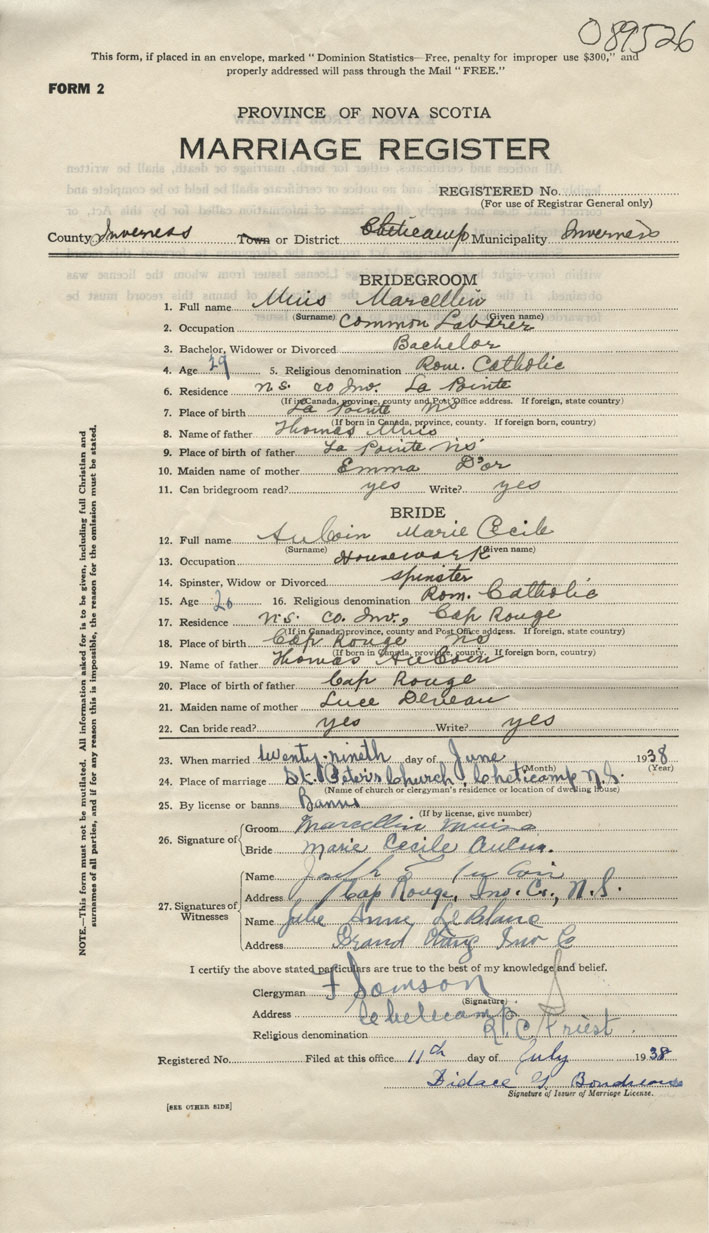 089526
This form, if placed in an envelope, marked "Dominion Statistics—Free, penalty for improper use $300," and
properly addressed will pass through the Mail "FREE."
FORM 2
PROVINCE OF NOVA SCOTIA
MARRIAGE REGISTER
REGISTERED No.
(For use of Registrar General only)
County Inverness Town or District Cheticamp Municipality Inverness
BRIDEGROOM
1. Full name Muis Marcellin
(Surname) (Given name)
2. Occupation Common Laborer
3. Bachelor, Widower or Divorced Bachelor
4. Age 29 5. Religious denomination Rom. Catholic
6. Residence N.S. Co Inv. La Pointe
(If in Canada, province, county and Post Office address. If foreign, state country)
7. Place of birth La Pointe NS
(If born in Canada, province, county. If foreign born, country)
8. Name of father Thomas Muis
9. Place of birth of father La Pointe NS
10. Maiden name of mother Emma D'or
11. Can bridegroom read? yes Write? yes
BRIDE
12. Full name AuCoin Marie Cecile
(Surname) (Given name)
13. Occupation Housework
14. Spinster, Widow or Divorced spinster
15. Age 20 16. Religious denomination Rom. Catholic
17. Residence N.S. Co. Inv., Cap Rouge
(If in Canada, province, county and Post Office address. If foreign, state country)
18. Place of birth Cap Rouge NS
(If born in Canada, province, county. If foreign born, country)
19. Name of father Thomas AuCoin
20. Place of birth of father Cap Rouge
21. Maiden name of mother Luce Deveau
22. Can bride read? yes Write? yes
23. When married twenty-nineth day of June 1938
(Month) (Year)
24. Place of marriage St. Peter's Church, Cheticamp N.S.
(Name of church or clergyman's residence or location of dwelling house)
25. By license or banns Banns
(If by license, give number)
26. Signature of
Groom Marcellin Muise
Bride Marie Cecile Aucoin.
27. Signatures of Witnesses
Name Joseph
Address Cap Rouge, Inv. Co., N.S.
Name Julie Anne LeBlanc
Address Grand Etang Inv Co
I certify the above stated particulars are true to the best of my knowledge and belief.
Clergyman
(Signature)
Address Cheticamp
Religious denomination R.C. Priest
Registered No. Filed at this office 11th day of July 1938
Didace Boudreau
Signature of Issuer of Marriage License.
[SEE OTHER SIDE]
NOTE.—This form must not be mutilated. All information asked for is to be given, including full Christian and
surnames of all parties, and if for any reason this is impossible, the reason for the omission must be stated.